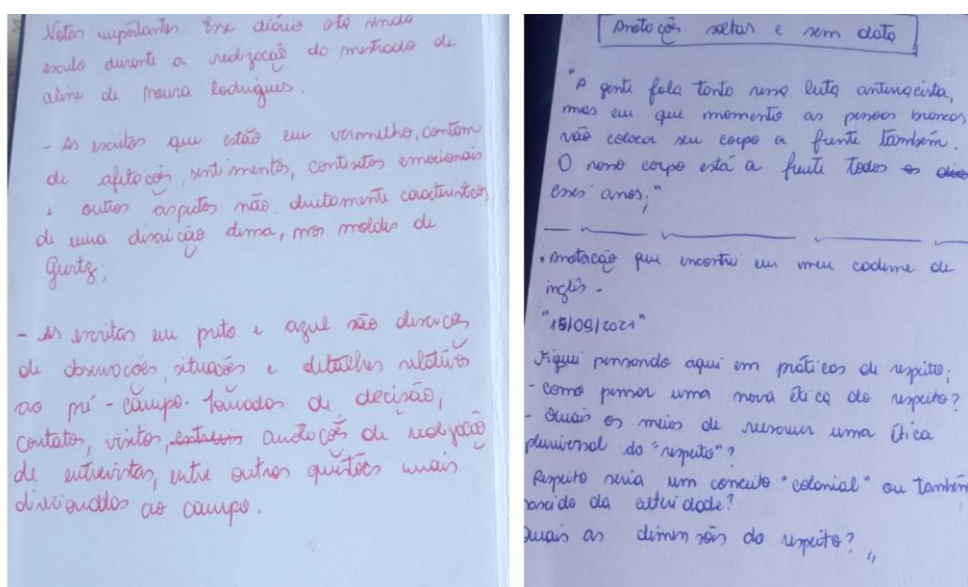 Notas importantes. Esse diário está sendo
escrito durante a realização do mestrado de
aline de Moura Rodrigues.
- As escritas que estão em vermelho, contém
de afetações, sentimentos, contextos emocionais
e outros aspectos não diretamente característicos
de uma discrição densa, nos moldes de
Geertz;
- As escritas em preto e azul são discrições
de observações, situações e detalhes relativos
ao pré-campo. Tomadas de decisão,
contatos, visitas, anotações de realização
de entrevistas, entre outras questões mais
direcionadas ao campo.
Anotações soltas e sem data
"A gente fala tanto nessa luta antirracista,
mas em que momento as pessoas brancas
vão colocar seu corpo a frente também.
O nosso corpo está a frente todos os
esses anos;"
• Anotação que encontrei em meu caderno de
inglês -
"15/09/2021"
Fiquei pensando aqui em práticas de respeito;
- como pensar uma nova ética do respeito?
- Quais os meios de reescrever uma ética
pluriversal do "respeito"?
Respeito seria um conceito "colonial" ou também
nascido da alteridade?
Quais as dimensões do respeito? "